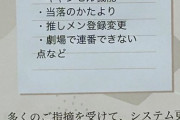 ・当落のかたより
・推しメン登録変更
・劇場で連番できない
点など
多くのご指摘を受けて、システム更